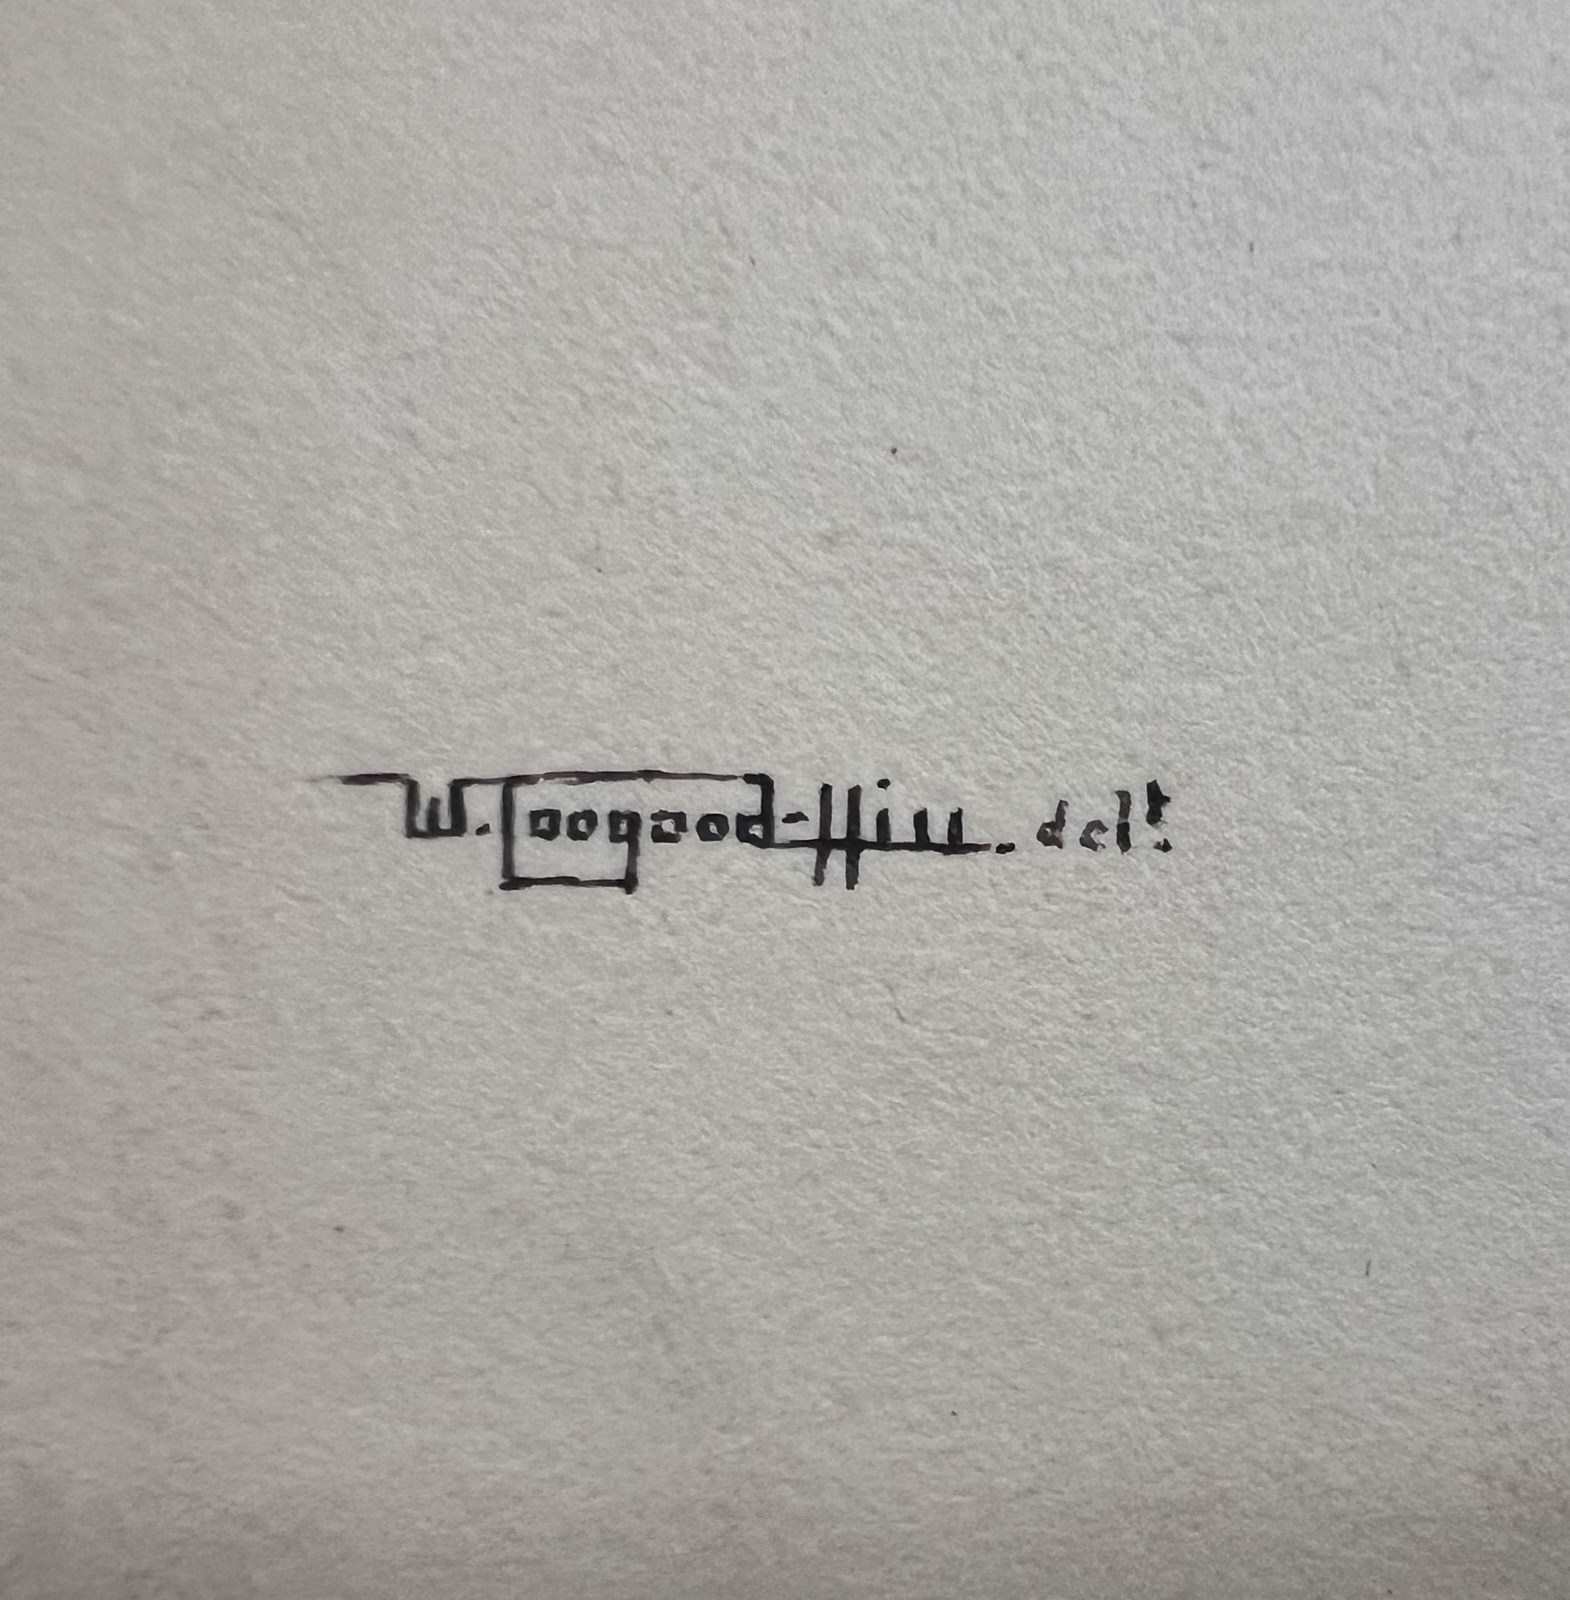 W. Toogood-Hill. delt.